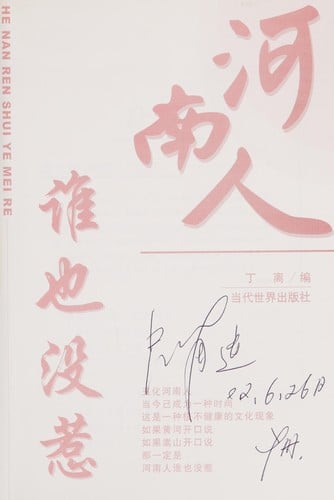 HE NAN REN SHUI YE MEI RE
河南人
谁也没惹
丁 离／编
当代世界出版社
丑化河南人
当今已成为一种时尚
这是一种极不健康的文化现象
如果黄河开口说
如果嵩山开口说
那一定是
河南人谁也没惹
02,6,26日